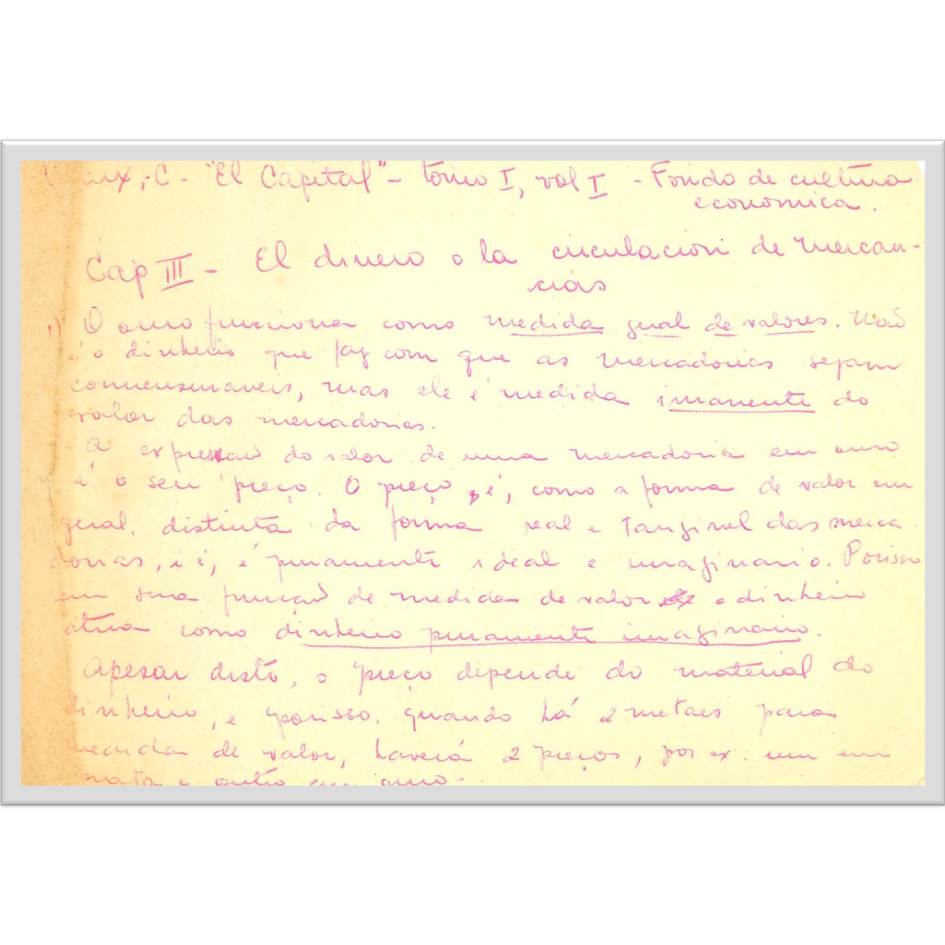 Marx, C. - "El Capital" - tomo I, vol I - Fondo de cultura
economica.
Cap III - El dinero o la circulacion de mercan-
cias
1) O ouro funciona como medida geral de valores. Não
é o dinheiro que faz com que as mercadorias sejam
comensuraveis, mas ele é medida imanente do
valor das mercadorias.
A expressão do valor de uma mercadoria em ouro
é o seu preço. O preço é, como a forma de valor em
geral, distinta da forma real e tangivel das merca-
dorias, i é, é puramente ideal e imaginario. Porisso
em sua função de medida de valor o dinheiro
atua como dinheiro puramente imaginario.
Apesar disto, o preço depende do material do
dinheiro, e porisso, quando há 2 metaes para
medida de valor, haverá 2 preços, por ex: um em
prata e outro em ouro.